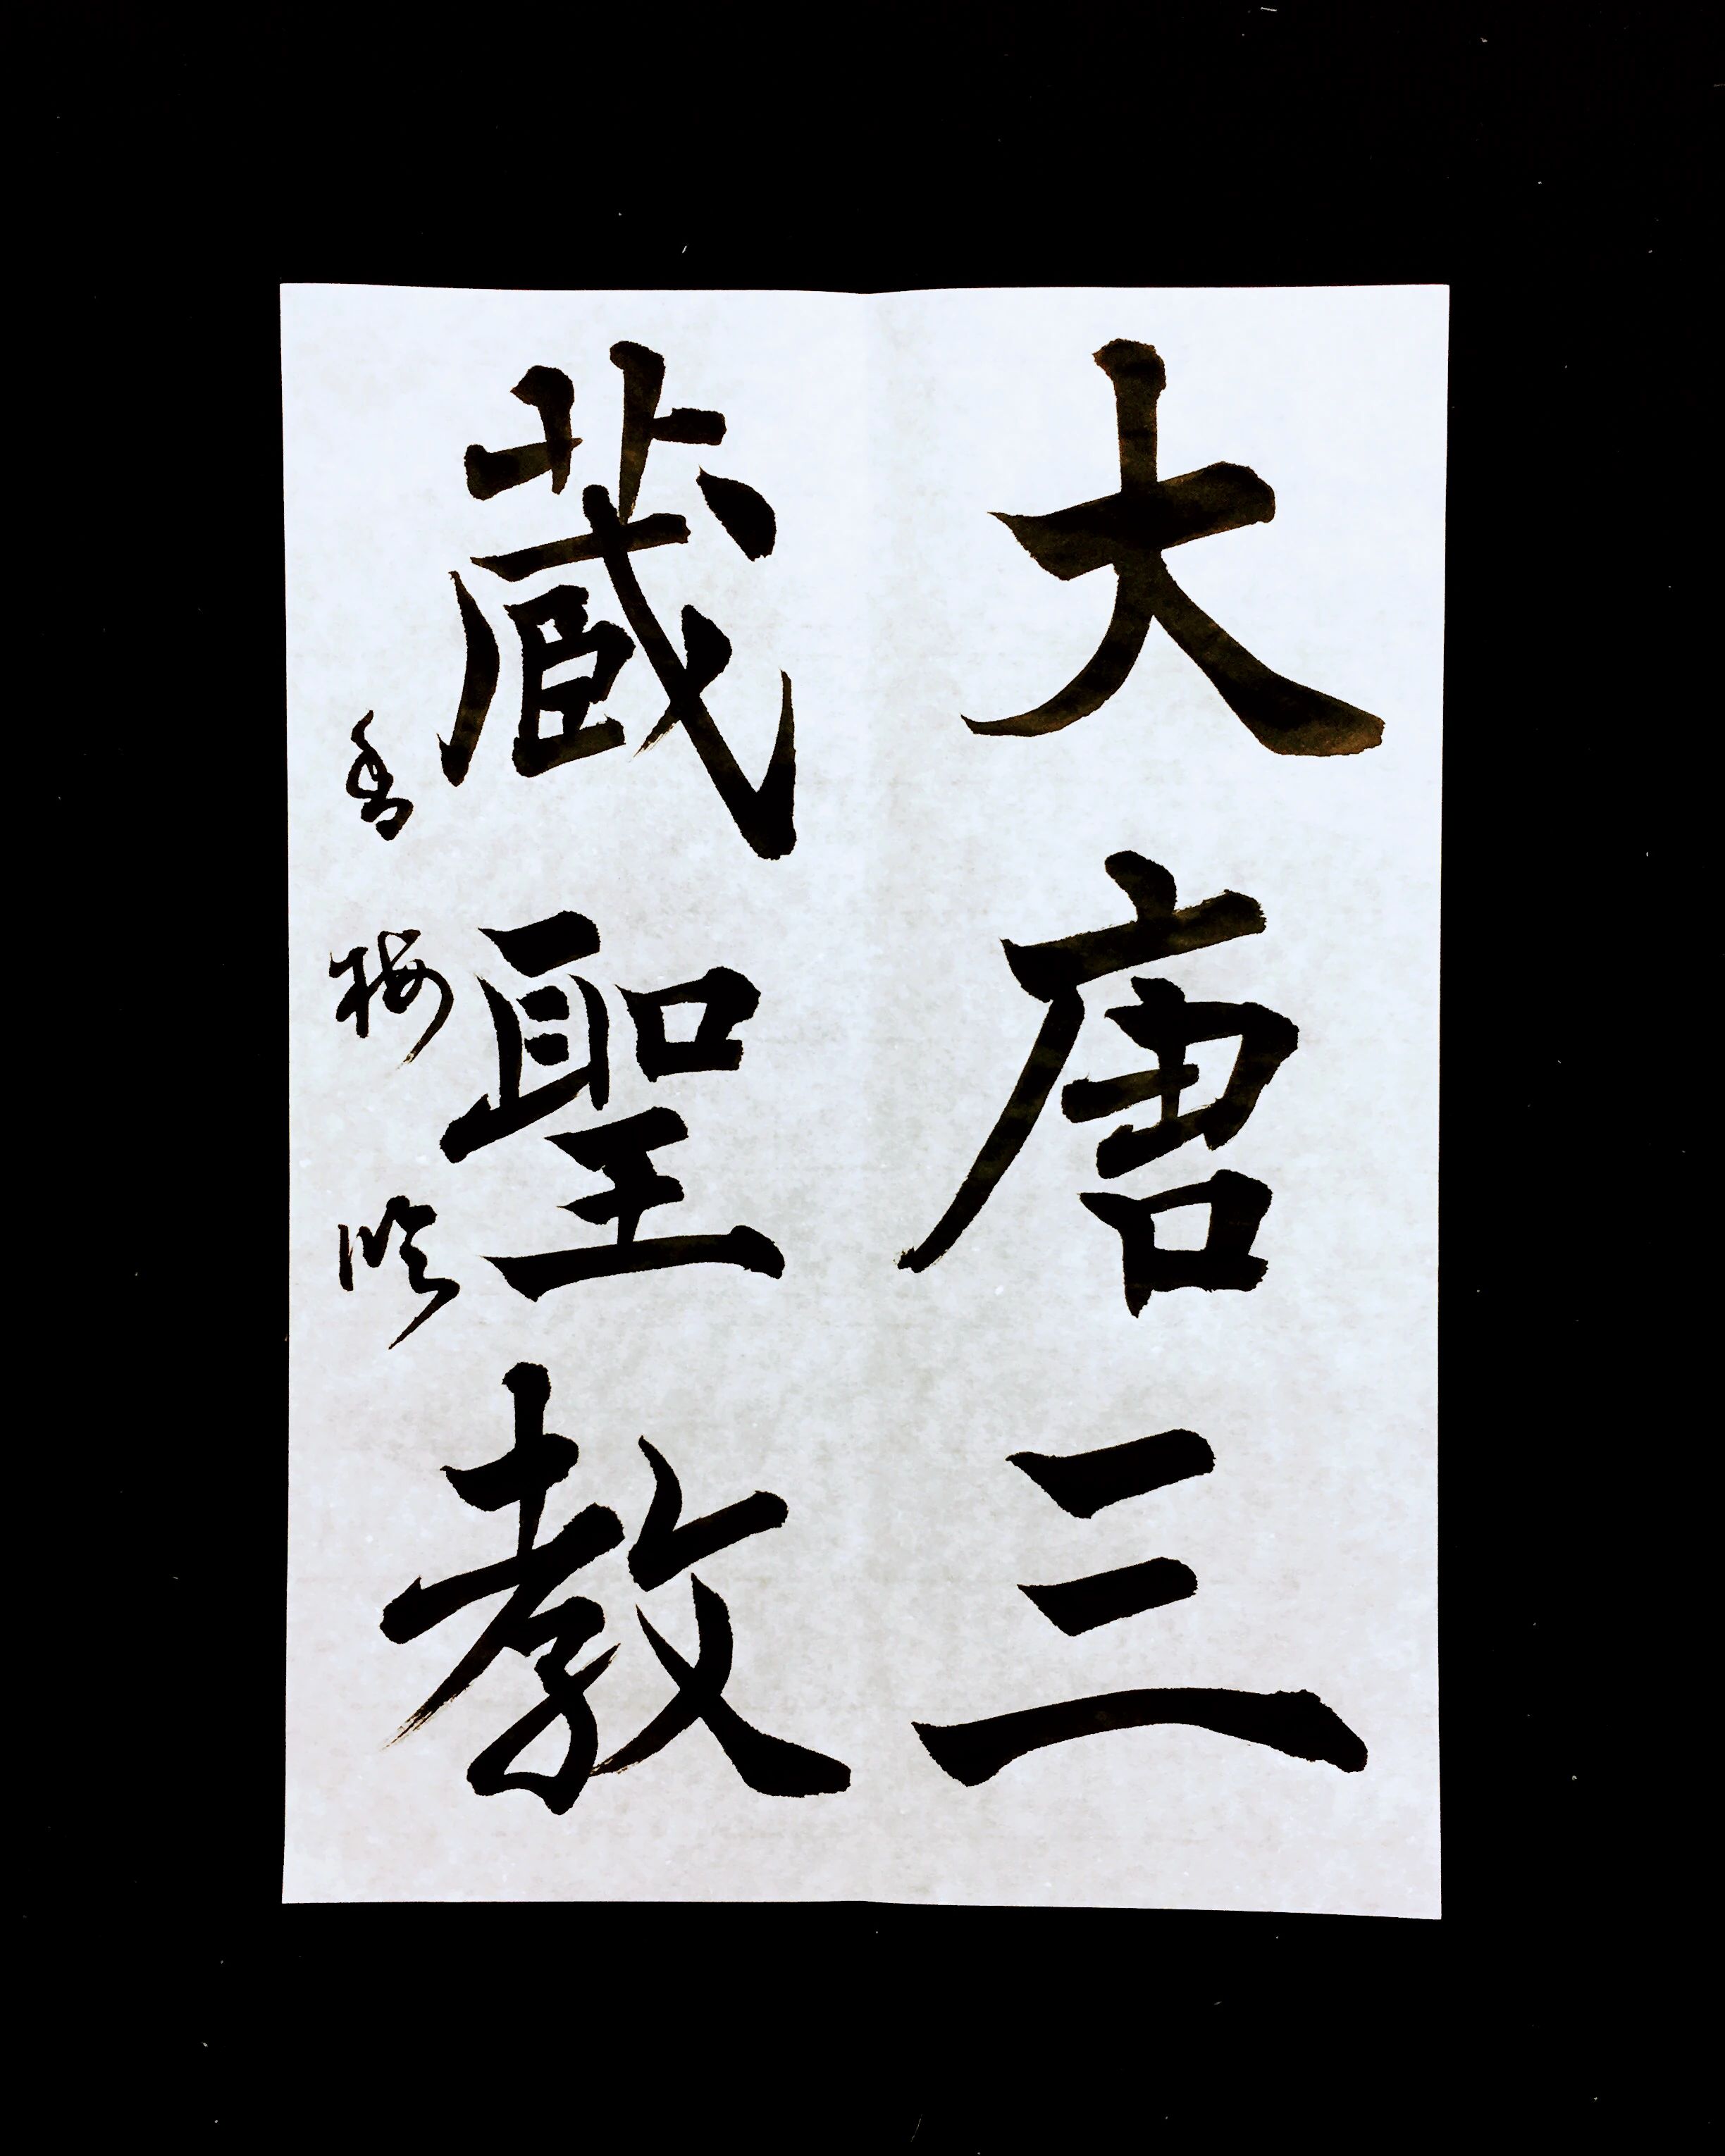 大唐三
蔵聖教
香梅臨